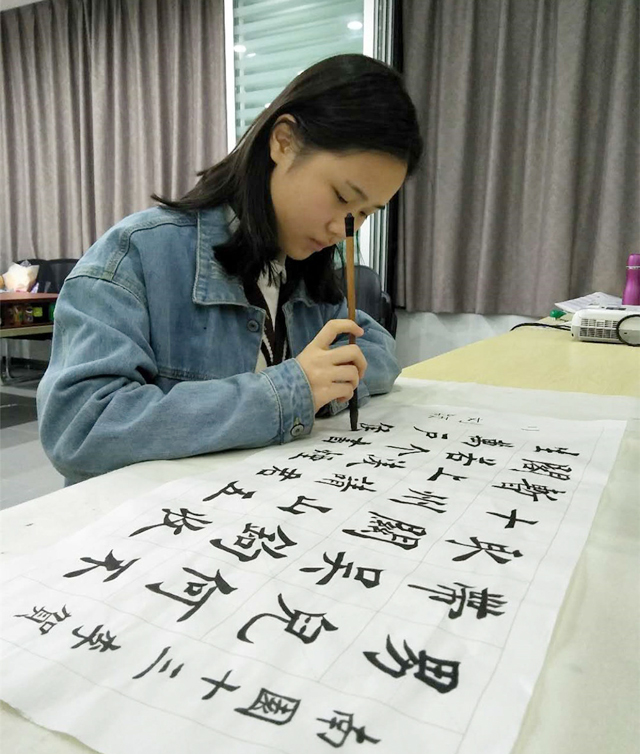 南園十三 李賀
男兒何不
帶吳鈎收
取關山五
十州請君
暫上凌煙
閣若个書
生萬戶侯